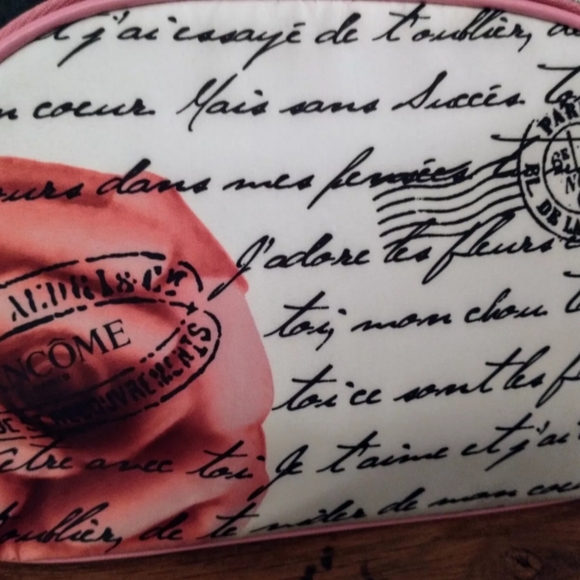 j'ai essayé de t'oublier, de
n coeur. Mais sans Succès. To
ours dans mes pensées t
PARI
RL DE LA
J'adore les fleurs e
ALDRI & C
toi, mon chou t
NCÔME
toi ce sont les f
être avec toi Je t'aime et j'ai
oublier, de te vider de mon coeu